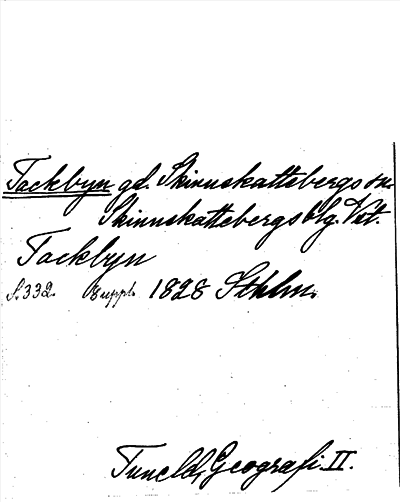 Tackbyn gd. Skinnskattebergs sn.
Skinnskattebergs blg. Vst.
Tackbyn
S. 332. Suppl. 1828 Sthlm.
Tuneld, Geografi II.